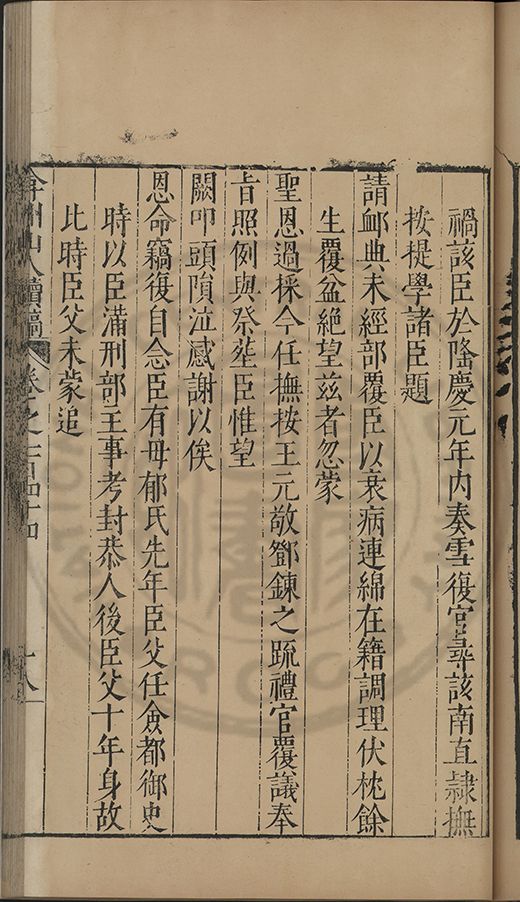 禍該臣於隆慶元年内奏雪復官尋該南直隷撫
按提學諸臣題
請䘏典未經部覆臣以衰病連綿在籍調理伏枕餘
生覆盆絶望兹者忽蒙
聖恩過採今任撫按王元敬鄧鍊之䟽禮官覆議奉
旨照例與祭塟臣惟望
闕叩頭隕泣感謝以俟
恩命竊復自念臣有毋郁氏先年臣父任僉都御史
時以臣滿刑部主事考封恭人後臣父十年身故
比時臣父未蒙追
弇州山人續稿 卷之一百四十四 十八